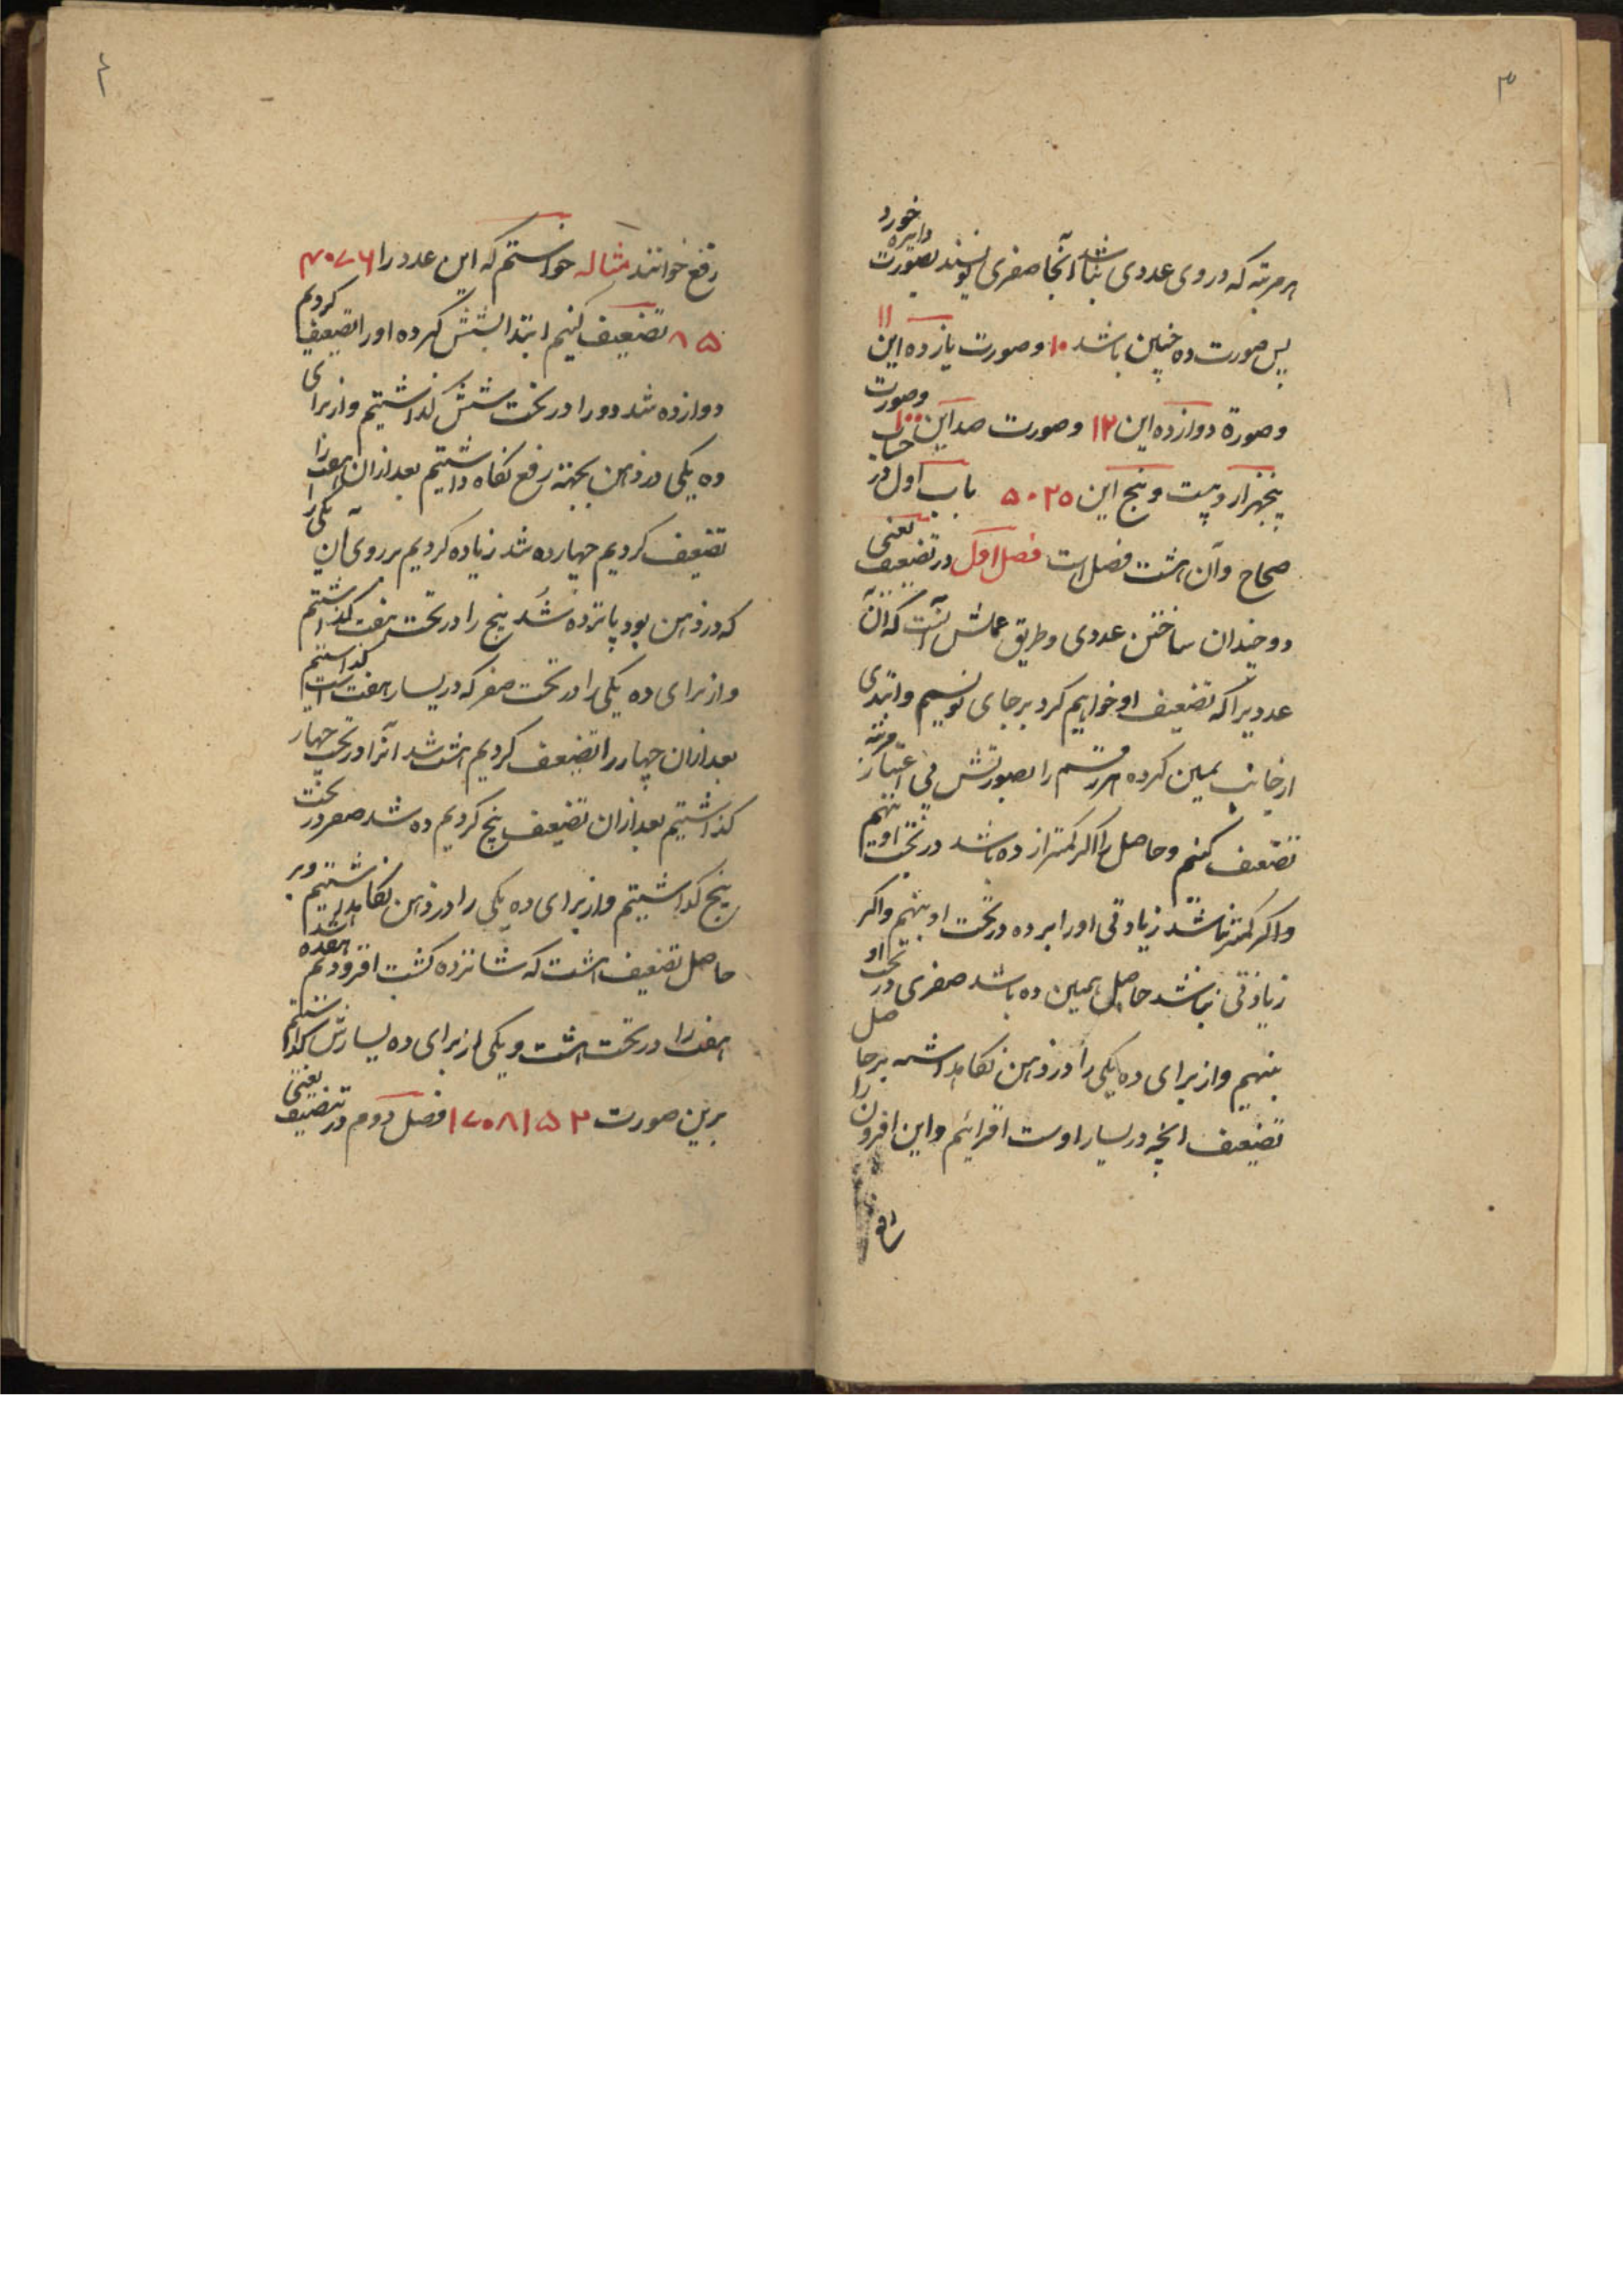 ۳
هر مرتبه که در وی عددی نباشد آنجا صفری نویسند بصورت دایره خورد
پس صورت ده چنین باشد ۱۰ و صورت یازده این ۱۱
و صورة دوازده این ۱۲ و صورت صد این ۱۰۰ و صورت
پنجهزار و بیست و پنج این ۵۰۲۵ باب اول در حساب
صحاح و آن هشت فصل است فصل اول در تضعیف یعنی
دو چندان ساختن عددی و طریق عملش آنست که آن
عددیرا که تضعیف او خواهیم کرد برجای نویسیم و ابتدی
از جانب یمین کرده هر رقم را بصورتش بی اعتبار مرتبه
تضعیف کنیم و حاصل را اگر کمتر از ده باشد در تحت او بنهیم
و اگر کمتر نباشد زیادتی او را بر ده در تحت او بنهیم و اگر
زیادتی نباشد حاصل همین ده باشد صفری در تحت او
بنهیم و از برای ده یکی را در ذهن نگاهداشته بر حاصل
تضعیف آنچه در یسار اوست افزائیم و این افزون را
رفع
۴
رفع خوانند مثاله خواستم که این عدد را ۴۰۷۶
۸۵ تضعیف کنیم ابتدا بشش کرده او را تضعیف کردیم
دوازده شد دو را در تحت شش گذاشتیم و از برای
ده یکی در ذهن بجهته رفع نگاه داشتیم بعد ازان هفت را
تضعیف کردیم چهارده شد زیاده کردیم بر روی آن یکی را
که در ذهن بود پانزده شد پنج را در تحت هفت گذاشتیم
و از برای ده یکی را در تحت صفر که در یسار هفت است گذاشتیم
بعد ازان چهار را تضعیف کردیم هشت شد آنرا در تحت چهار
گذاشتیم بعد ازان تضعیف پنج کردیم ده شد صفر در تحت
پنج گذاشتیم و از برای ده یکی را در ذهن نگاهداشتیم و بر
حاصل تضعیف هشت که شانزده گشت افزودیم هفده شد
هفت را در تحت هشت و یکی از برای ده یسارش گذاشتیم
برین صورت ۱۷۰۸۱۵۲ فصل دوم در تنصیف یعنی